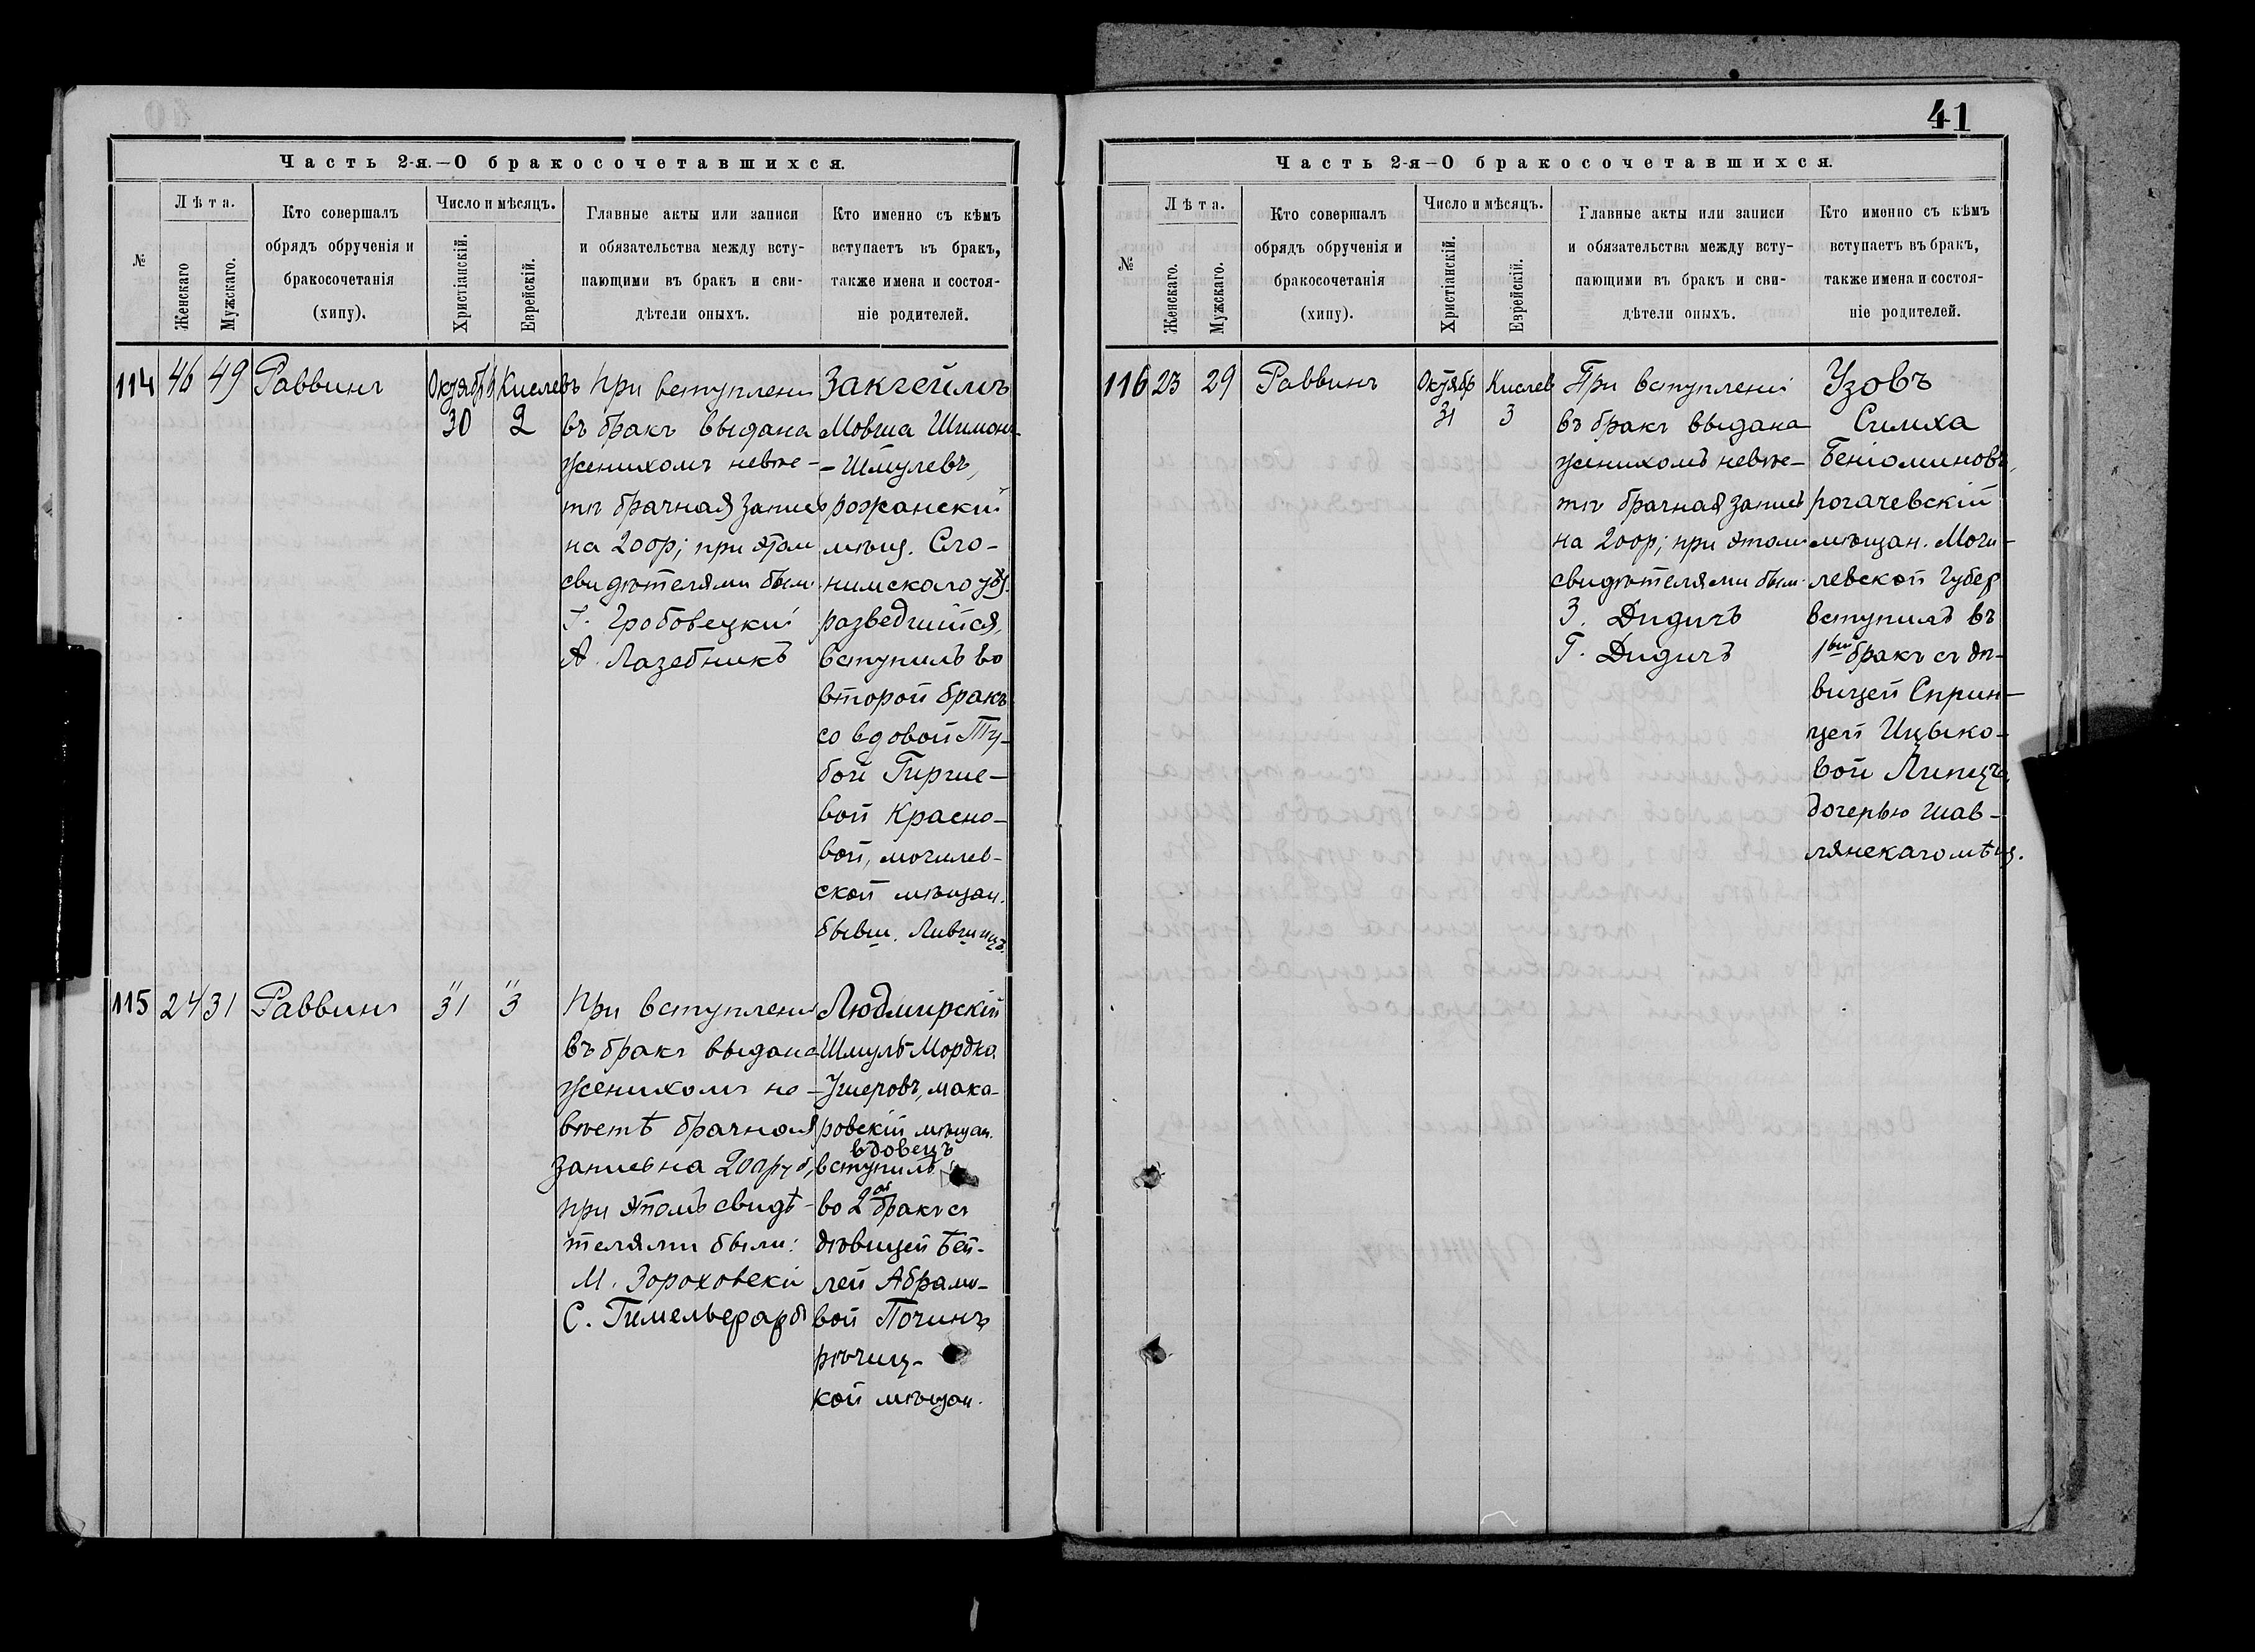 Часть 2-я.—О бракосочетавшихся.
№
Лѣта.
Женскаго
Мужскаго.
Кто совершалъ
обрядъ обрученія и
бракосочетанія
(хипу).
Число и мѣсяцъ.
Христіанскій.
Еврейскій.
Главные акты или записи
и обязательства между всту-
пающими въ бракъ и сви-
дѣтели оныхъ.
Кто именно съ кѣмъ
вступаетъ въ бракъ,
также имена и состоя-
ніе родителей.
114
46
49
Раввинъ
Октябрь
30
Кислевъ
2
При вступлени
въ бракъ выдана
женихомъ невѣс-
тѣ брачная запись
на 200р; при этом
свидѣтелями были
Гробовецкій
А. Лазебникъ
Закгеймъ
Мовша Шимонъ-
-Шмулевъ,
рожанскій
мѣщ. Сло-
нимскаго уѣз.
разведшійся,
вступилъ во
второй бракъ
со вдовой Ту-
бой Гирше-
вой Красно-
вой, могилев-
ской мѣщан.
бывш. Лившицъ.
115
24
31
Раввинъ
"
31
"
3
При вступлени
въ бракъ выдана
женихомъ не-
вѣстѣ брачная
запись на 200руб,
при этомъ свидѣ-
телями были:
М. Зороховскі
С. Гимельфарбъ
Людмирскій
Шмуль-Мордко
Ушеровъ, мака-
ровскій мѣщан.
вдовецъ
вступилъ
во 2ой бракъ съ
дѣвицей Бей-
лей Абрамо-
вой Починъ
рѣчиц-
кой мѣщан.
41
Часть 2-я—О бракосочетавшихся.
№
Лѣта.
Женскаго.
Мужскаго.
Кто совершалъ
обрядъ обрученія и
бракосочетанія
(хипу).
Число и мѣсяцъ.
Христіанскій.
Еврейскій.
Главные акты или записи
и обязательства между всту-
пающими въ бракъ и сви-
дѣтели оныхъ.
Кто именно съ кѣмъ
вступаетъ въ бракъ,
также имена и состоя-
ніе родителей.
116
23
29
Раввинъ
Октябр
31
Кислев
3
При вступлені
въ бракъ выдана
женихомъ невѣс-
тѣ брачная запись
на 200р; при этом
свидѣтелями были
З. Дидичъ
Г. Дидичъ
Узовъ
Симха
Беніоминовъ,
рогачевскій
мѣщан. Моги-
левской губер
вступилъ въ
1вый бракъ съ дѣ-
вицей Сприн-
цей Ицыко-
вой Липицъ,
дочерью шав-
лянскаго мѣщ.